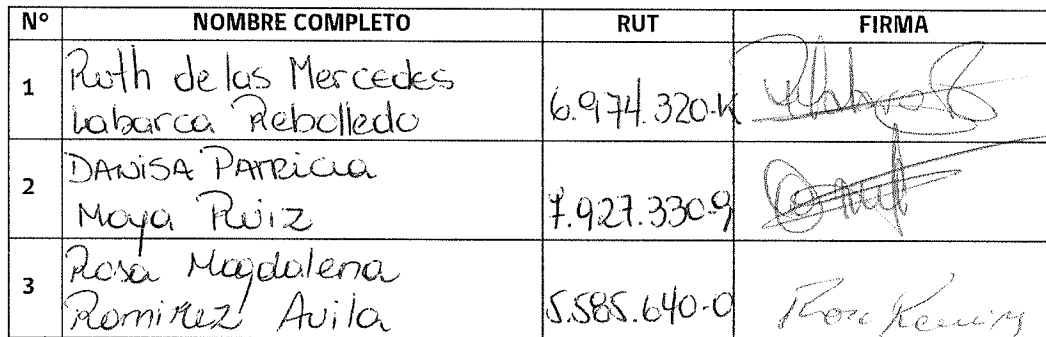 N° NOMBRE COMPLETO RUT FIRMA
1 Ruth de las Mercedes
Labarca Rebolledo 6.974.320-K
2 DANISA PATRICIA
Moya Ruiz 7.927.330-9
3 Rosa Magdalena
Ramirez Avila 5.585.640-0